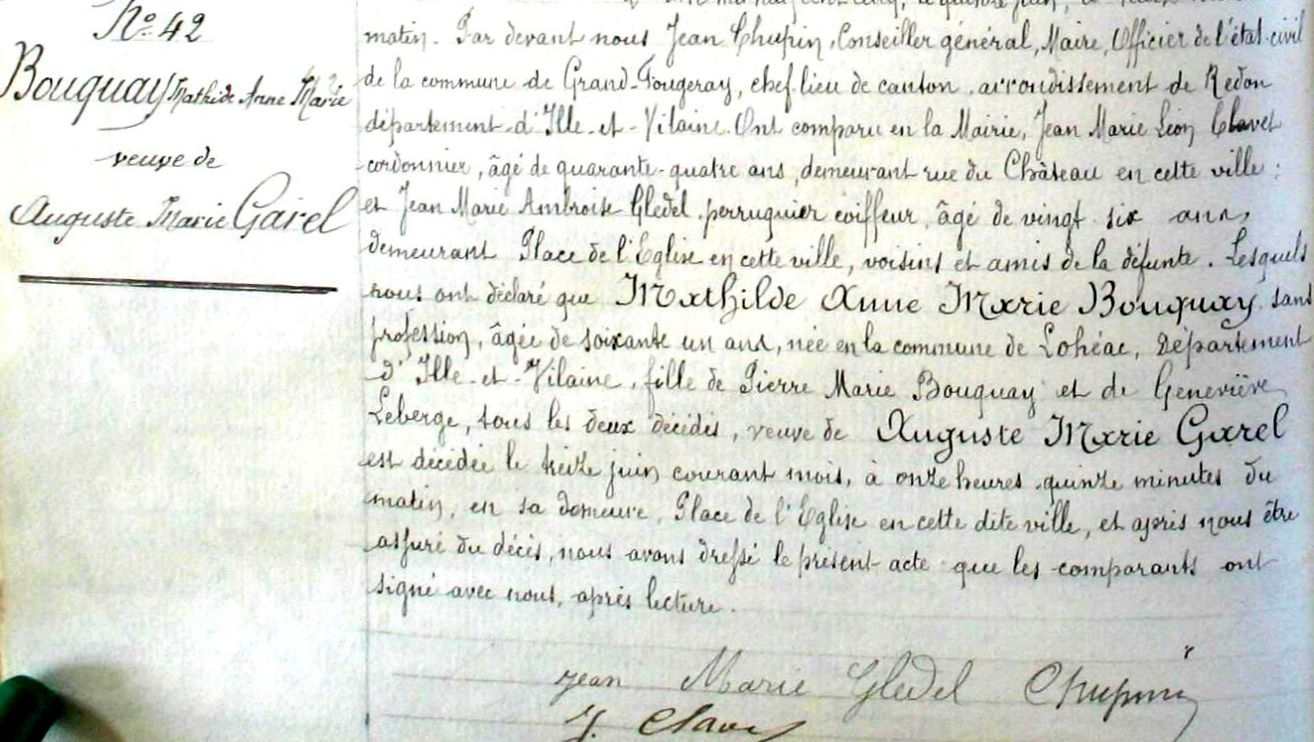 No 42
Bouquay Mathilde Anne Marie
veuve de
Auguste Marie Garel
matin. Par devant nous Jean Chupin, Conseiller général, Maire, Officier de l'état-civil
de la commune de Grand-Fougeray, chef lieu de canton, arrondissement de Redon
département d'Ille-et-Vilaine. Ont comparu en la Mairie, Jean Marie Léon Clavet
cordonnier, âgé de quarante-quatre ans, demeurant rue du Château en cette ville;
et Jean Marie Ambroise Gledel, perruquier coiffeur, âgé de vingt six ans,
demeurant Place de l'Eglise en cette ville, voisins et amis de la défunte. Lesquels
nous ont déclaré que Mathilde Anne Marie Bouquay, sans
profession, âgée de soixante un ans, née en la commune de Lohéac, Département
d'Ille-et-Vilaine, fille de Pierre Marie Bouquay et de Geneviève
Leberge, tous les deux décédés, veuve de Auguste Marie Garel
est décédée le treize juin courant mois, à onze heures quinze minutes du
matin, en sa demeure, Place de l'Eglise en cette dite ville, et après nous être
assuré du décès, nous avons dressé le présent acte que les comparants ont
signé avec nous, après lecture.
Jean Marie Gledel Chupin
J. Clavet